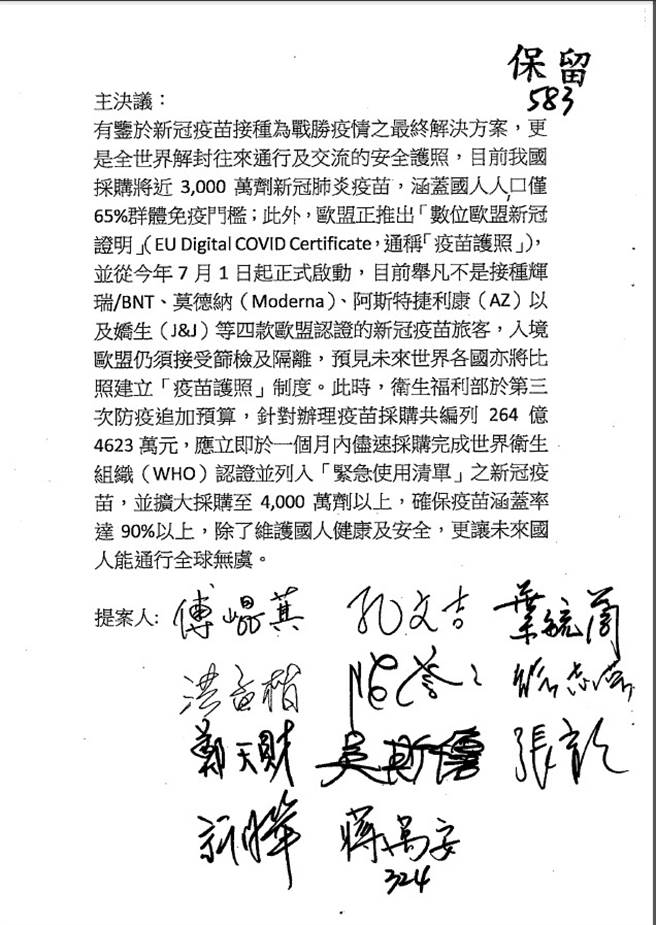 保留
583
主決議：
有鑒於新冠疫苗接種為戰勝疫情之最終解決方案，更
是全世界解封往來通行及交流的安全護照，目前我國
採購將近 3,000 萬劑新冠肺炎疫苗，涵蓋國人人口僅
65%群體免疫門檻；此外，歐盟正推出「數位歐盟新冠
證明」（EU Digital COVID Certificate，通稱「疫苗護照」），
並從今年 7 月 1 日起正式啟動，目前舉凡不是接種輝
瑞/BNT、莫德納（Moderna）、阿斯特捷利康（AZ）以
及嬌生（J&J）等四款歐盟認證的新冠疫苗旅客，入境
歐盟仍須接受篩檢及隔離，預見未來世界各國亦將比
照建立「疫苗護照」制度。此時，衛生福利部於第三
次防疫追加預算，針對辦理疫苗採購共編列 264 億
4623 萬元，應立即於一個月內儘速採購完成世界衛生
組織（WHO）認證並列入「緊急使用清單」之新冠疫
苗，並擴大採購至 4,000 萬劑以上，確保疫苗涵蓋率
達 90%以上，除了維護國人健康及安全，更讓未來國
人能通行全球無虞。
提案人: 傅崐萁 孔文吉 葉毓蘭
洪孟楷
鄭天財 吳斯懷
蔣萬安
324